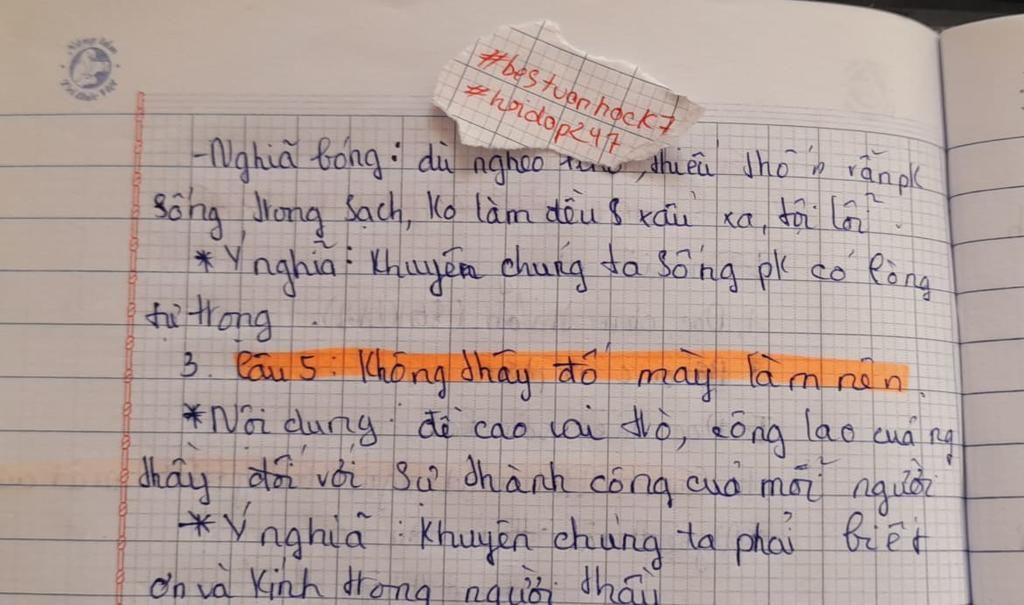 #bestuanhock7
#hoidop247
-Nghiã bóng: dù nghèo, thiếu thốn vẫn pk
sống trong sạch, ko làm đều xấu xa, tội lỗi.
* Ý nghiã: Khuyên chúng ta sống pk có lòng
tự trọng.
3. Câu 5: Không thầy đố mày làm nên.
*Nội dung: đề cao vai trò, công lao cuả ng
thầy đối với sự thành công cuả mỗi người
* Ý nghiã: Khuyên chúng ta phải biết
ơn và Kính trọng người thầy